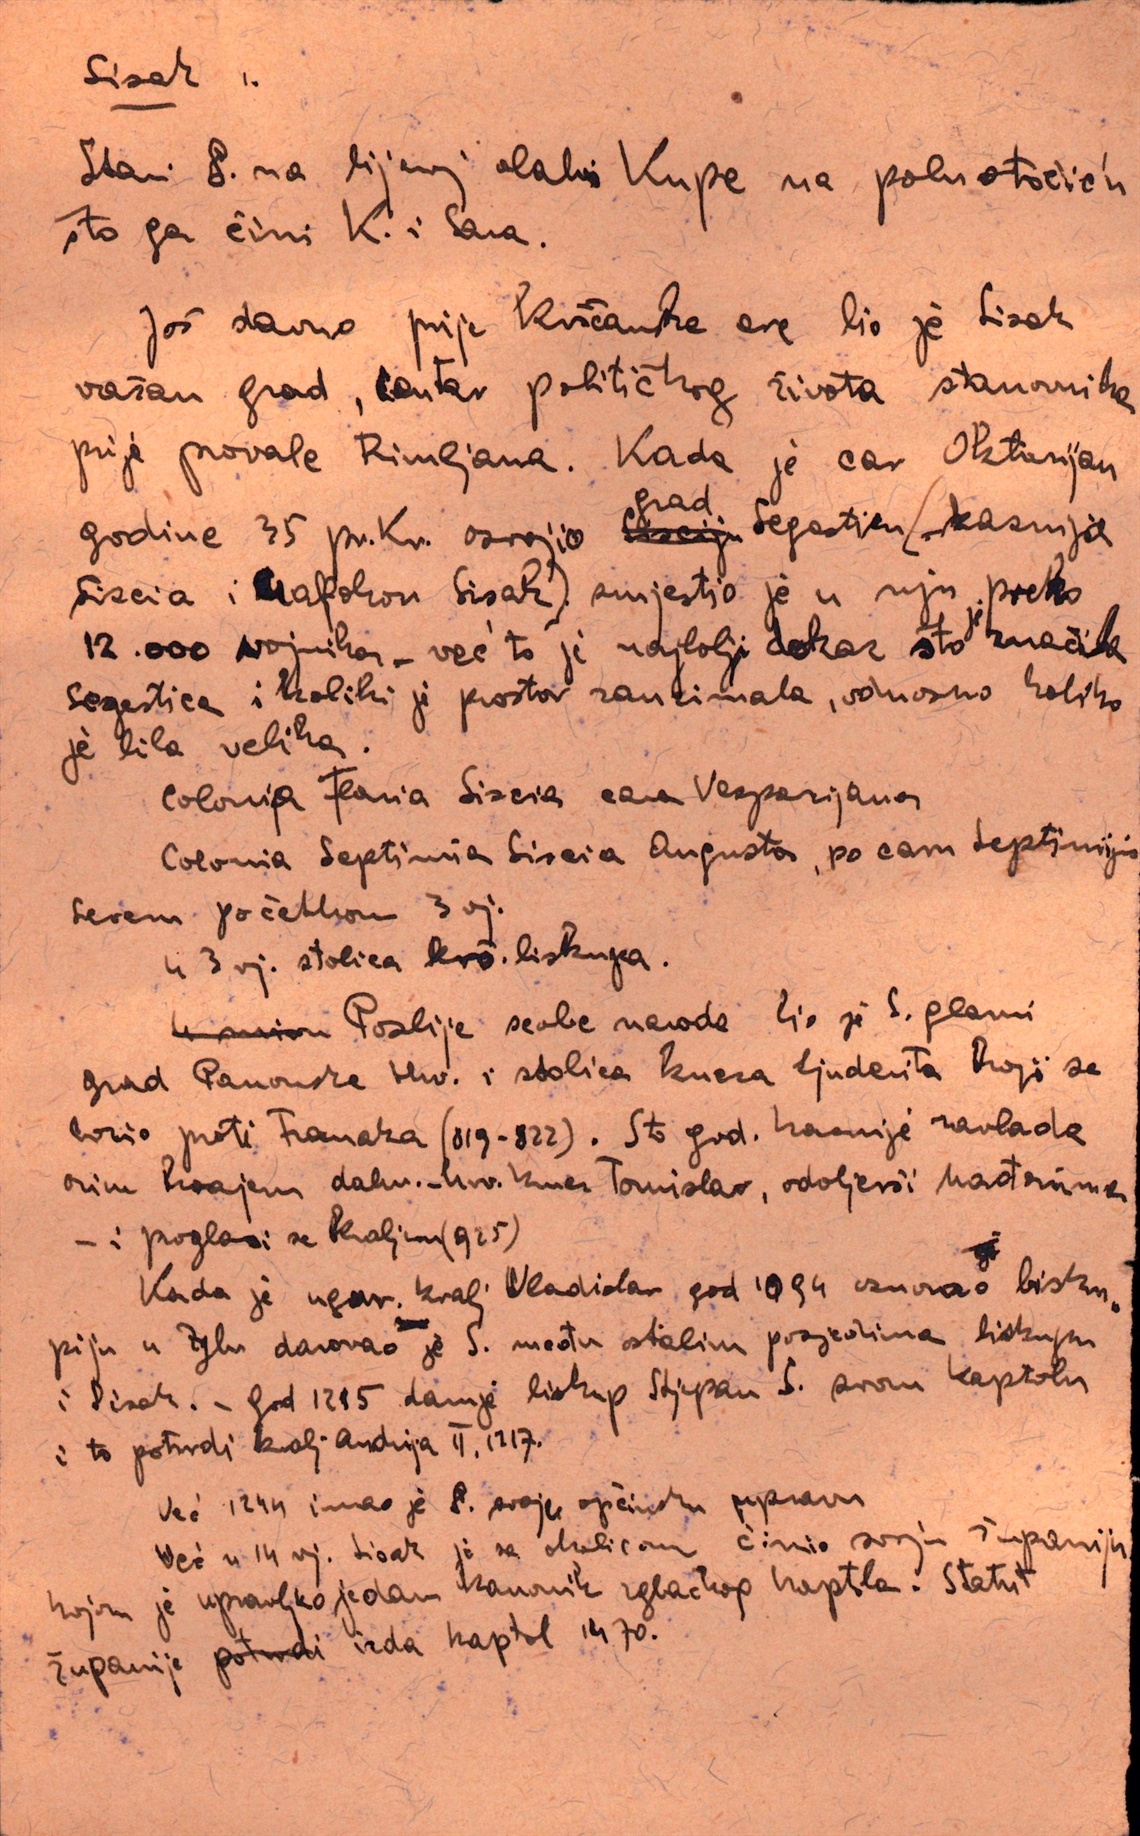 Sisak 1.
Stari S. na lijevoj obali Kupe na poluotočiću
što ga čini K. i Sava.
Još davno prije kršćanske ere bio je Sisak
važan grad, centar političkog života stanovnika
prije provale Rimljana. Kada je car Oktavijan
godine 35 pr.Kr. osvojio grad Segesticu (kasnije
Siscia i Sisak) smjestio je u nju preko
12.000 vojnika – već to je najbolji dokaz što je značila
Segestica i koliki je prostor zauzimala, odnosno koliko
je bila velika.
Colonia Flavia Siscia cara Vespazijana
Colonia Septimia Siscia Augusta, po caru Septimiju
Severu početkom 3 vj.
u 3 vj. stolica krš. biskupa.
Poslije seobe naroda bio je S. glavni
grad Panonske Hrv. i stolica kneza Ljudevita koji se
borio proti Franaka (819-822). Sto god. kasnije zavlada
ovim krajem dalm.-hrv. knez Tomislav, odoljevši Mađarima
– i proglasi se kraljem (925)
Kada je ugar. kralj Vladislav god 1094 osnovao bisku-
piju u Zgbu darovao je S. među ostalim posjedima biskupu
i Sisak. – God 1215 daruje biskup Stjepan S. svom kaptolu
i to potvrdi kralj Andrija II, 1217.
Već 1244 imao je S. svoju općinsku upravu
Već u 14 vj. Sisak je sa okolicom činio svoju županiju
kojom je upravljao jedan kanonik zgbačkog kaptola. Statut
županije potvrdi izda kaptol 1470.